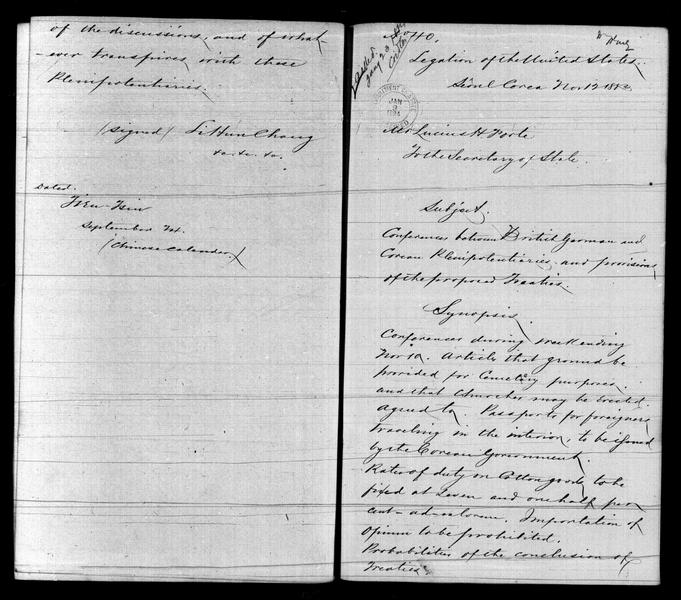 of the discussions, and of what-
-ever transpires with these
Plenipotentiaries.
(Signed) Li Hun Chang
&c. &c. &c.
Dated.
Tien-Tsin
September 
(Chinese Calendar.)
No 40.
Legation of the United States.
Seoul Corea Nov 12 1883.
JAN
9
1884
Mr Lucius H Foote
To the Secretary of State.
Subject.
Conferences between British German and
Corean Plenipotentiaries and provisions
of the proposed Treaties.
Synopsis.
Conferences during week ending
Nov 10. Articles that ground be
provided for Cemetery purposes.
and that Churches may be erected.
agreed to. Passports for foreigners
traveling in the interior, to be issued
by the Corean Government.
Rates of duty on Cotton goods to be
fixed at seven and one half per
cent-ad-valorem. Importation of
Opium to be prohibited.
Probabilities of the conclusion of
Treaties